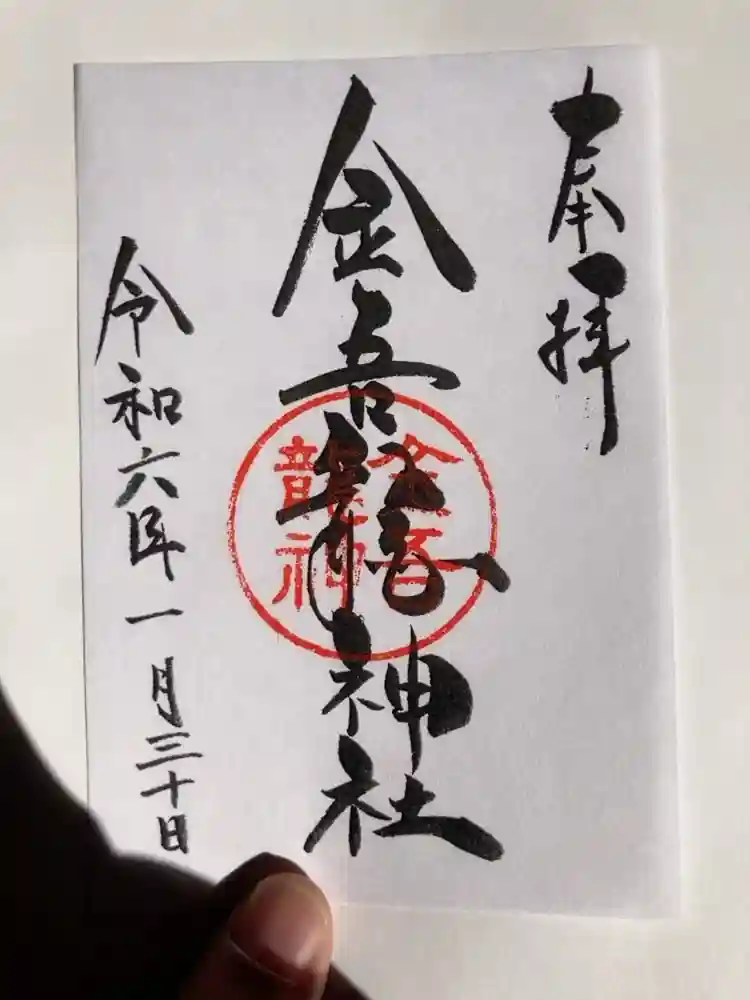 奉拝
金吾龍神社
令和六年一月三十日
金吾
龍神